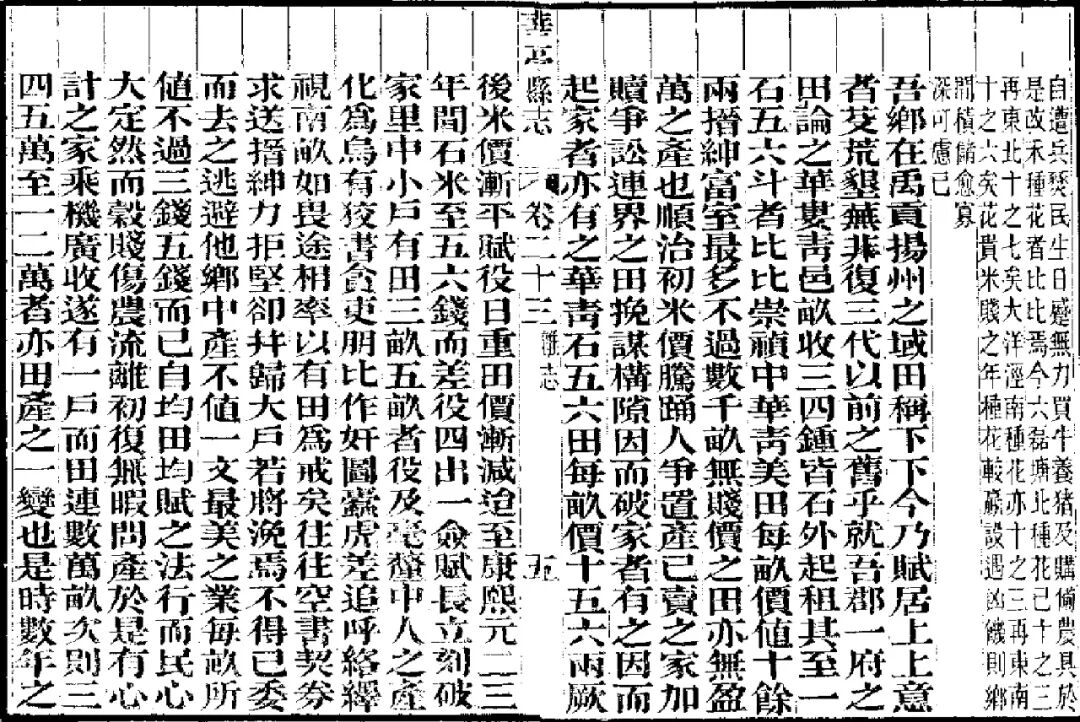 自遭兵燹民生日蹙無力買牛養猪及購備農具於
是改禾種花者比比焉今六磊塘北種花已十之三
再東北十之七矣大洋涇南種花亦十之三再東南
十之六矣花貴米賤之年種花較贏設遇凶饑則鄉
間積儲愈寡
深可慮已
吾鄉在禹貢揚州之域田稱下下今乃賦居上上意
者芟荒墾蕪非復三代以前之舊乎就吾郡一府之
田論之華婁靑邑畝收三四鍾皆石外起租其至一
石五六斗者比比崇禎中華靑美田每畝價值十餘
兩搢紳富室最多不過數千畝無賤價之田亦無盈
萬之產也順治初米價騰踊人爭置產已賣之家加
贖爭訟連界之田挽謀構隙因而破家者有之因而
起家者亦有之華靑石五六田每畝價十五六兩厥
華亭縣志 卷二十三 雜志 五
後米價漸平賦役日重田價漸減迨至康熙元二三
年間石米至五六錢而差役四出一僉賦長立刻破
家里中小戶有田三畝五畝者役及毫釐中人之產
化爲烏有狡書貪吏朋比作奸圖蠹虎差追呼絡繹
視南畝如畏途相率以有田爲戒矣往往空書契券
求送搢紳力拒堅卻幷歸大戶若將浼焉不得已委
而去之逃避他鄉中產不值一文最美之業每畝所
値不過三錢五錢而已自均田均賦之法行而民心
大定然而穀賤傷農流離初復無暇問產於是有心
計之家乘機廣收遂有一戶而田連數萬畝次則三
四五萬至一二萬者亦田產之一變也是時數年之